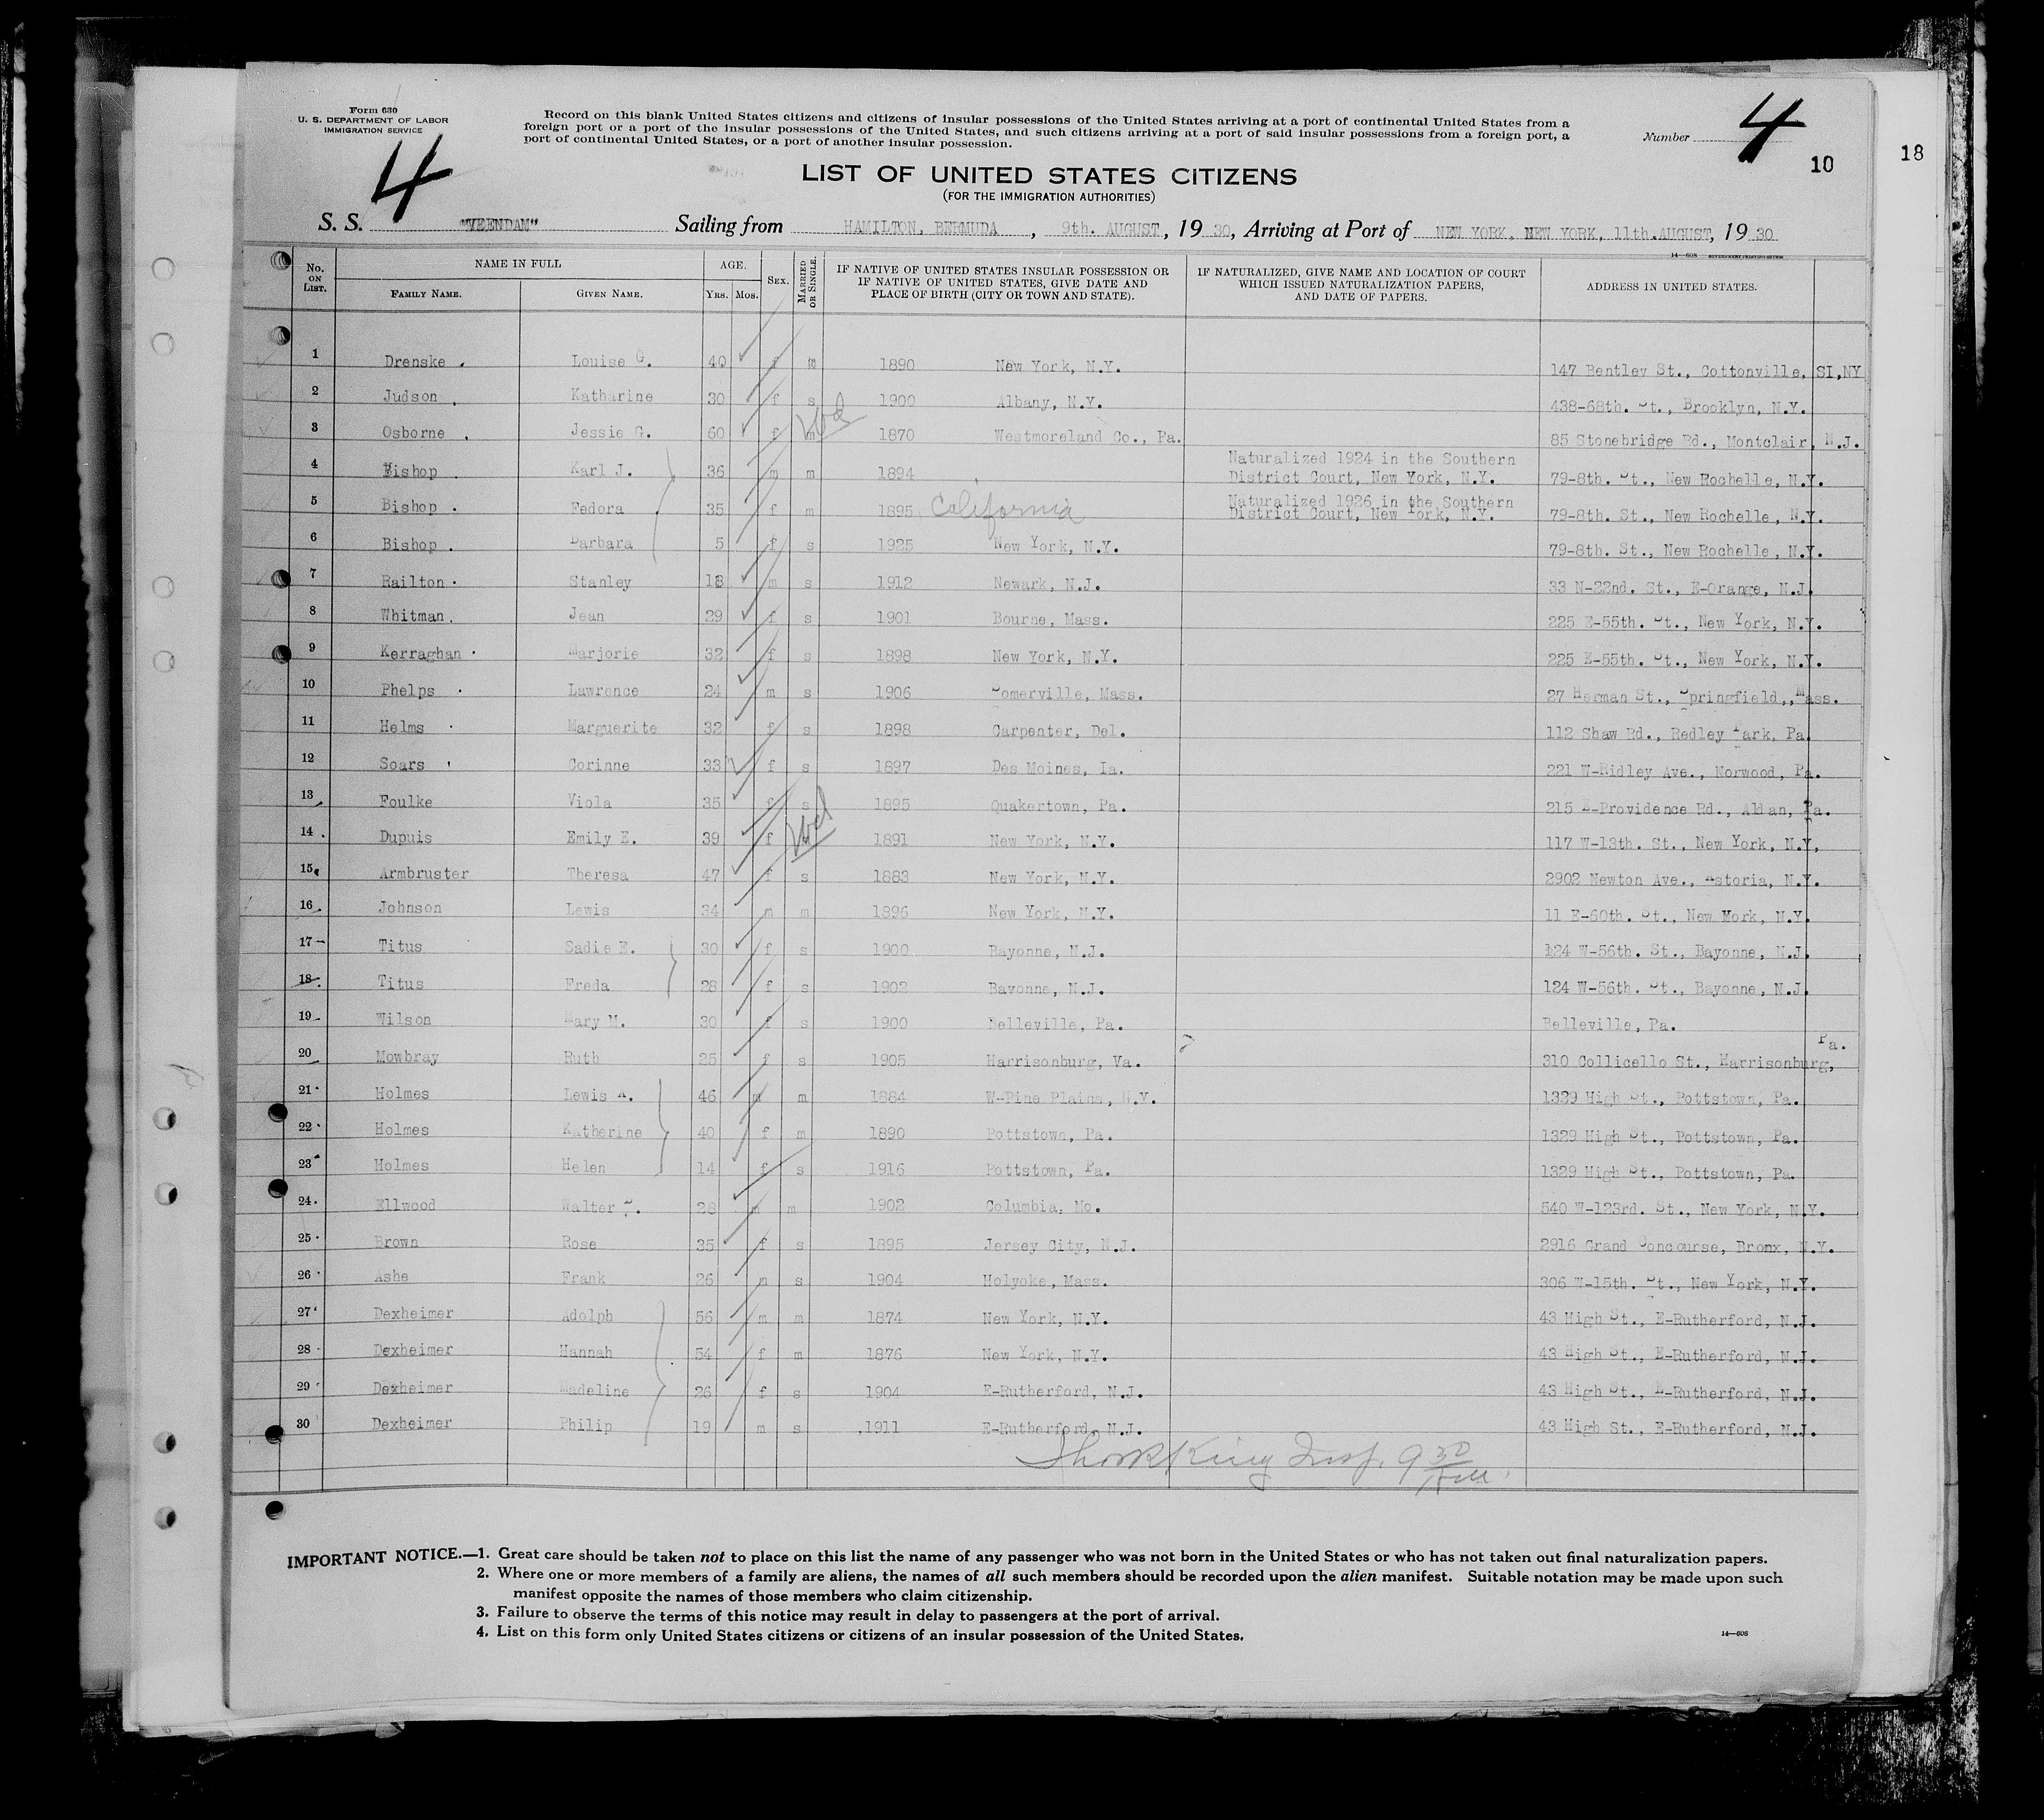 Form 630
U. S. DEPARTMENT OF LABOR
IMMIGRATION SERVICE
Record on this blank United States citizens and citizens of insular possessions of the United States arriving at a port of continental United States from a
foreign port or a port of the insular possessions of the United States, and such citizens arriving at a port of said insular possessions from a foreign port, a
port of continental United States, or a port of another insular possession.
Number 4
10
18
4
LIST OF UNITED STATES CITIZENS
(FOR THE IMMIGRATION AUTHORITIES)
S. S. "VEENDAM" Sailing from HAMILTON, BERMUDA, 9th. AUGUST, 1930, Arriving at Port of NEW YORK, NEW YORK, 11th.AUGUST, 1930
14—608
No. ON LIST. NAME IN FULL AGE. SEX. MARRIED OR SINGLE. IF NATIVE OF UNITED STATES INSULAR POSSESSION OR IF NATIVE OF UNITED STATES, GIVE DATE AND PLACE OF BIRTH (CITY OR TOWN AND STATE). IF NATURALIZED, GIVE NAME AND LOCATION OF COURT WHICH ISSUED NATURALIZATION PAPERS, AND DATE OF PAPERS. ADDRESS IN UNITED STATES.
FAMILY NAME. GIVEN NAME. YRS. MOS.
1 Drenske . Louise G. 40 f m 1890 New York, N.Y. 147 Bentley St., Cottonville, SI,NY
2 Judson . Katharine 30 f s 1900 Albany, N.Y. 438-68th. St., Brooklyn, N.Y.
3 Osborne . Jessie G. 60 f m Wd 1870 Westmoreland Co., Pa. 85 Stonebridge Rd., Montclair, N.J.
4 Bishop . Karl J. 36 m m 1894 Naturalized 1924 in the Southern District Court, New York, N.Y. 79-8th. St., New Rochelle, N.Y.
5 Bishop . Fedora 35 f m 1895 California Naturalized 1926 in the Southern District Court, New York, N.Y. 79-8th. St., New Rochelle, N.Y.
6 Bishop . Barbara 5 f s 1925 New York, N.Y. 79-8th. St., New Rochelle, N.Y.
7 Railton . Stanley 18 m s 1912 Newark, N.J. 33 N-22nd. St., E-Orange, N.J.
8 Whitman . Jean 29 f s 1901 Bourne, Mass. 225 E-55th. St., New York, N.Y.
9 Kerraghan . Marjorie 32 f s 1898 New York, N.Y. 225 E-55th. St., New York, N.Y.
10 Phelps . Lawrence 24 m s 1906 Somerville, Mass. 27 Herman St., Springfield,,Mass.
11 Helms . Marguerite 32 f s 1898 Carpenter, Del. 112 Shaw Rd., Redley Park, Pa.
12 Soars Corinne 33 f s 1897 Des Moines, Ia. 221 W-Ridley Ave., Norwood, Pa.
13 Foulke Viola 35 f s 1895 Quakertown, Pa. 215 E-Providence Rd., Aldan, Pa.
14 . Dupuis Emily E. 39 f Wd 1891 New York, N.Y. 117 W-13th. St., New York, N.Y.
15 Armbruster Theresa 47 f s 1883 New York, N.Y. 2902 Newton Ave., Astoria, N.Y.
16 Johnson Lewis 34 m m 1896 New York, N.Y. 11 E-60th. St., New Mork, N.Y.
17 Titus Sadie E. 30 f s 1900 Bayonne, N.J. 124 W-56th. St., Bayonne, N.J.
18 Titus Freda 28 f s 1902 Bayonne, N.J. 124 W-56th. St., Bayonne, N.J.
19 Wilson Mary M. 30 f s 1900 Belleville, Pa. Belleville, Pa.
20 Mowbray Ruth 25 f s 1905 Harrisonburg, Va. 310 Collicello St., Harrisonburg, Pa.
21 Holmes Lewis A. 46 m m 1884 W-Pine Plains, N.Y. 1329 High St., Pottstown, Pa.
22 Holmes Katherine 40 f m 1890 Pottstown, Pa. 1329 High St., Pottstown, Pa.
23 Holmes Helen 14 f s 1916 Pottstown, Pa. 1329 High St., Pottstown, Pa.
24 Ellwood Walter 28 m m 1902 Columbia, Mo. 540 W-123rd. St., New York, N.Y.
25 Brown Rose 35 f s 1895 Jersey City, N.J. 2916 Grand Concourse, Bronx, N.Y.
26 Ashe Frank 26 m s 1904 Holyoke, Mass. 306 W-15th. St., New York, N.Y.
27 Dexheimer Adolph 56 m m 1874 New York, N.Y. 43 High St., E-Rutherford, N.J.
28 Dexheimer Hannah 54 f m 1876 New York, N.Y. 43 High St., E-Rutherford, N.J.
29 Dexheimer Madeline 26 f s 1904 E-Rutherford, N.J. 43 High St., E-Rutherford, N.J.
30 Dexheimer Philip 19 m s 1911 E-Rutherford, N.J. 43 High St., E-Rutherford, N.J.
King Insp. 9 30
IMPORTANT NOTICE.—1. Great care should be taken not to place on this list the name of any passenger who was not born in the United States or who has not taken out final naturalization papers.
2. Where one or more members of a family are aliens, the names of all such members should be recorded upon the alien manifest. Suitable notation may be made upon such
manifest opposite the names of those members who claim citizenship.
3. Failure to observe the terms of this notice may result in delay to passengers at the port of arrival.
4. List on this form only United States citizens or citizens of an insular possession of the United States.
14—608